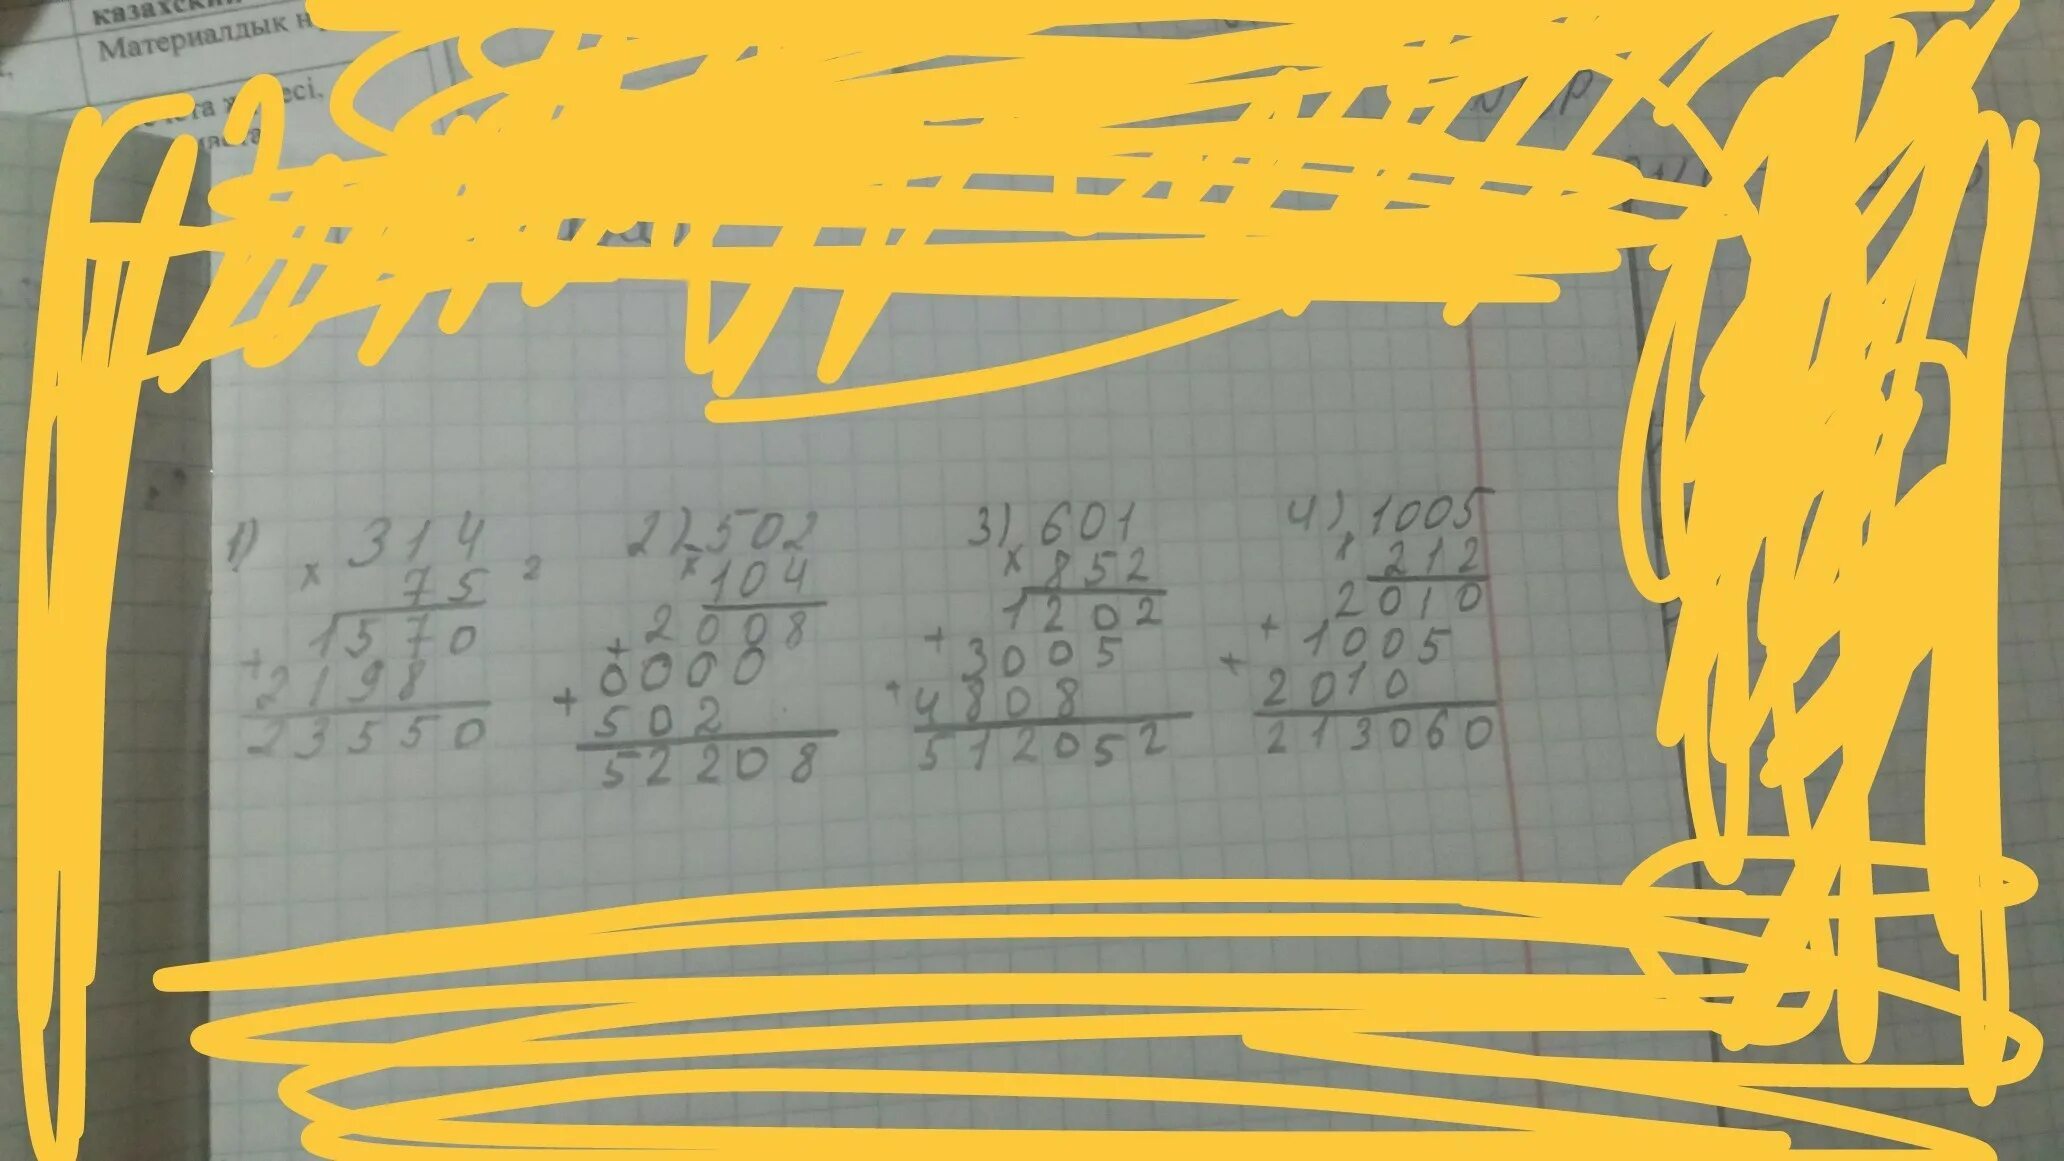 казахский
Материалдык
1) 314
× 75
1570
+ 2198
23550
2) 502
× 104
2008
+ 0000
+ 502
52208
3) 601
× 852
1202
+ 3005
+ 4808
512052
4) 1005
× 212
2010
+ 1005
+ 2010
213060